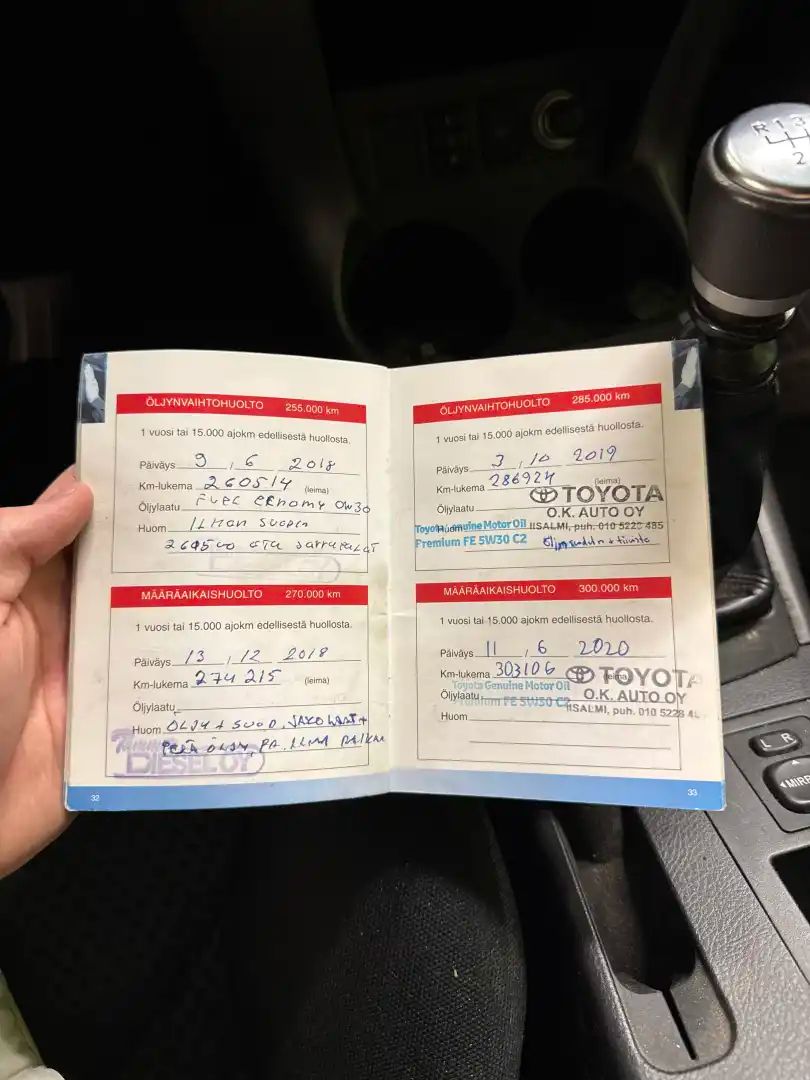 ÖLJYNVAIHTOHUOLTO 255.000 km
1 vuosi tai 15.000 ajokm edellisestä huollosta.
Päiväys 9 , 6 2018
Km-lukema 260514 (leima)
Öljylaatu Fuel economy 0W30
Huom Ilman suodin
260500 etu jarrupalat
MÄÄRÄAIKAISHUOLTO 270.000 km
1 vuosi tai 15.000 ajokm edellisestä huollosta.
Päiväys 13 , 12 2018
Km-lukema 274215 (leima)
Öljylaatu
Huom ÖLJY + SUOD, JAKOLAAT +
PERÄ ÖLJY, PA. ILMA RAIKAS
DIESEL OY
32
ÖLJYNVAIHTOHUOLTO 285.000 km
1 vuosi tai 15.000 ajokm edellisestä huollosta.
Päiväys 3 , 10 2019
Km-lukema 286924 (leima)
TOYOTA
Öljylaatu O.K. AUTO OY
Huom Toyota Genuine Motor Oil IISALMI, puh. 010 5228 485
Premium FE 5W30 C2
MÄÄRÄAIKAISHUOLTO 300.000 km
1 vuosi tai 15.000 ajokm edellisestä huollosta.
Päiväys 11 , 6 2020
Km-lukema 303106 (leima) TOYOTA
Toyota Genuine Motor Oil
Öljylaatu Premium FE 5W30 C2 O.K. AUTO OY
IISALMI, puh. 010 5228 4
Huom
33
R 1 3
2
L R
MIRR